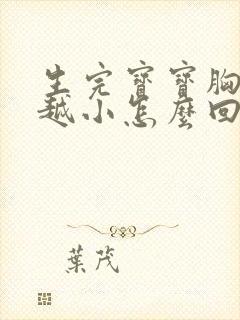 生完寶寶胸
越小怎麼回
葉茂